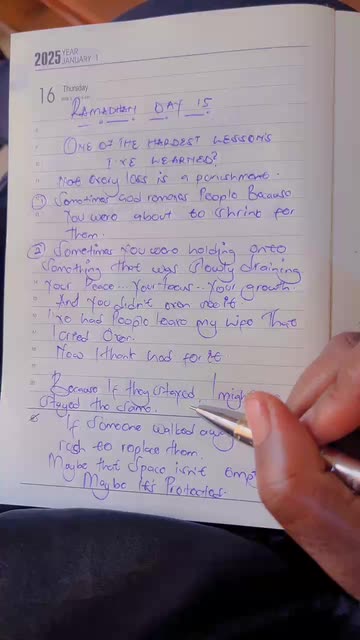 2025 YEAR
JANUARY 1
16 Thursday
RAMADHAN DAY 15
ONE OF THE HARDEST LESSONS
I'VE LEARNED?
Not every loss is a punishment.
① Sometimes God removes People Because
You were about to shrink for
them.
② Sometimes You were holding onto
Something that was slowly draining
Your Peace... Your focus... Your growth.
And You didn't even see it
I've had People leave my life That
I cried Over.
Now I thank God for it
Because If they stayed, I migh
stayed the same.
If someone walked away
rush to replace them.
Maybe that Space isn't empt
Maybe It's Protected.